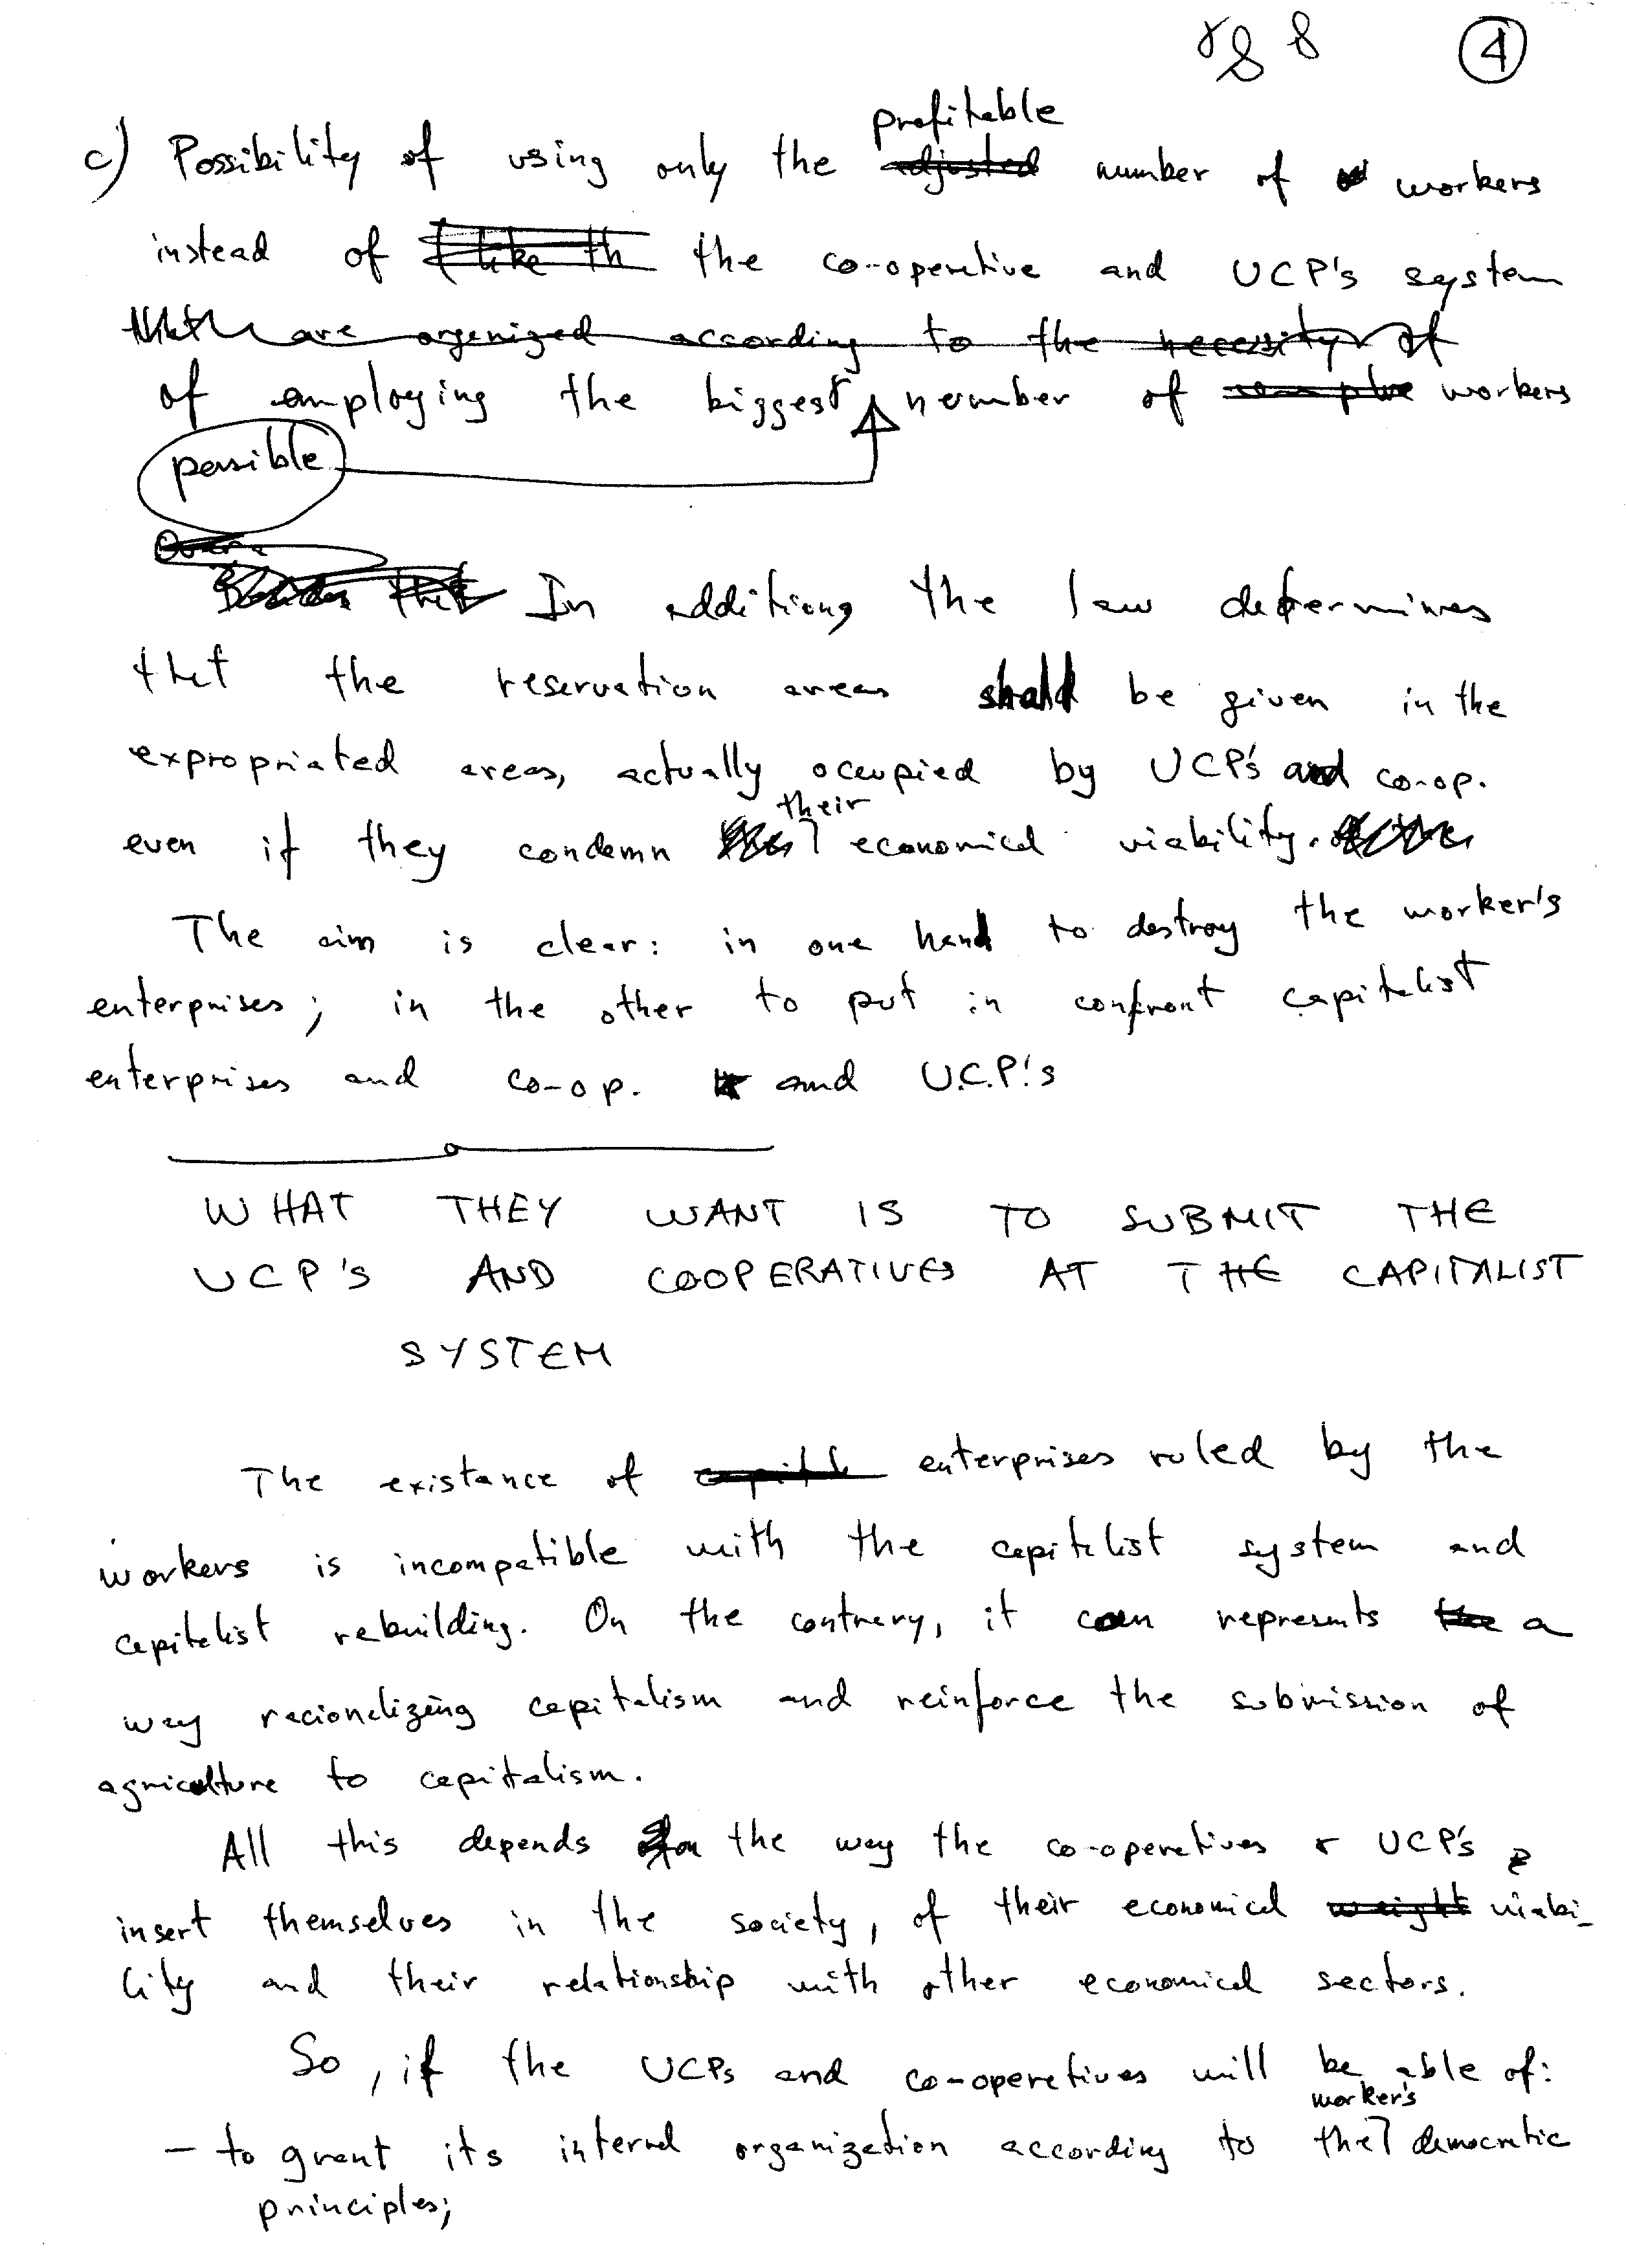 ④
profitable
c) Possibility of using only the adjusted number of workers
instead of like th the co-operative and UCP's system
that are organized according to the necessity of
of employing the biggest number of workers
possible
In additiong the law determines
that the reservation areas shald be given in the
expropriated areas, actually occupied by UCP's and co-op.
their
even if they condemn economical viability.
The aim is clear: in one hand to destroy the worker's
enterprises; in the other to put in confront capitalist
enterprises and co-op. and U.C.P.'s
WHAT THEY WANT IS TO SUBMIT THE
UCP'S AND COOPERATIVES AT THE CAPITALIST
SYSTEM
The existance of enterprises ruled by the
workers is incompatible with the capitalist system and
capitalist rebuilding. On the contrary, it can represents the a
way racionalizing capitalism and reinforce the submission of
agriculture to capitalism.
All this depends on the way the co-operatives & UCP's
insert themselves in the society, of their economical weight viabi-
lity and their relationship with other economical sectors.
So, if the UCPs and co-operatives will be able of:
worker's
- to grant its internal organization according to the democratic
principles;